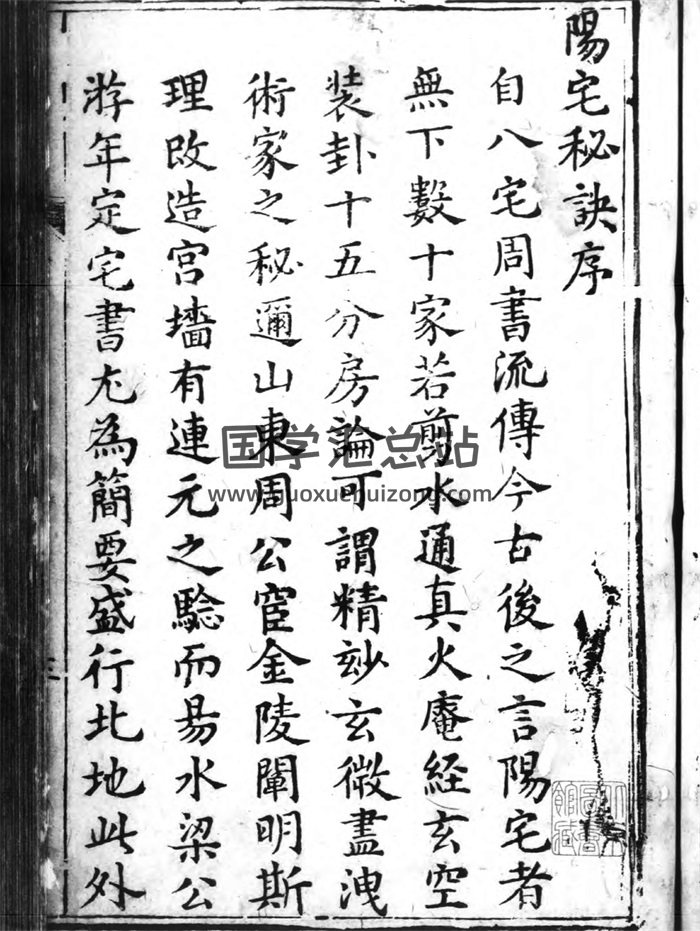 陽宅秘訣序
自八宅周書流傳今古後之言陽宅者
無下數十家若剪水通真火庵経玄空
装卦十五分房論可謂精玅玄微盡洩
術家之秘邇山東周公宦金陵闡明斯
理改造宮墻有連元之驗而易水梁公
游年定宅書尤為簡要盛行北地此外
国学汇总站
www.guoxuehuizong.com